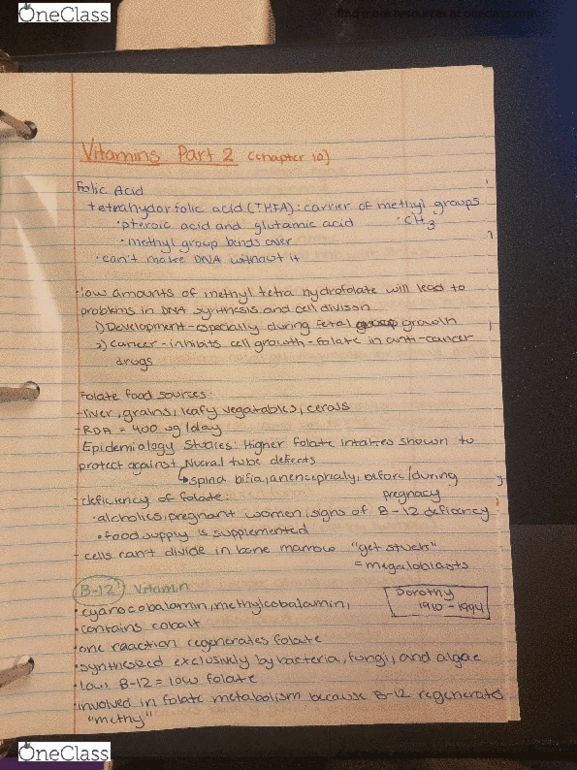 OneClass
find more resources at oneclass.com
Vitamins Part 2 (Chapter 10)
Folic Acid
tetrahydorfolic acid (THFA): carrier of methyl groups
• pteroic acid and glutamic acid • CH3
• methyl group binds over
• can't make DNA without it
• low amounts of methyl tetra hydrofolate will lead to
problems in DNA synthesis and cell divison
1) Development - especially during fetal growth
2) cancer - inhibits cell growth - folate in anti-cancer
drugs
Folate food sources:
- liver, grains, leafy vegatables, cerals
- RDA = 400 ug/day
Epidemiology Studies: Higher folate intakes shown to
protect against Nueral tube defects
↳ spina bifia, anencephaly, before/during
pregnacy
- deficiency of folate:
• alcholics, pregnant women, signs of B-12 deficency
• food supply is supplemented
- cells can't divide in bone marrow "get stuck"
= megaloblasts
B-12 Vitamin
Dorothy
1910-1994
• cyanocobalamin, methylcobalamin,
• contains cobalt
• one reaction regenerates folate
• synthesized exclusively by bacteria, fungi, and algae
• low B-12 = low folate
• involved in folate metabolism because B-12 regenerats
"methy"
OneClass